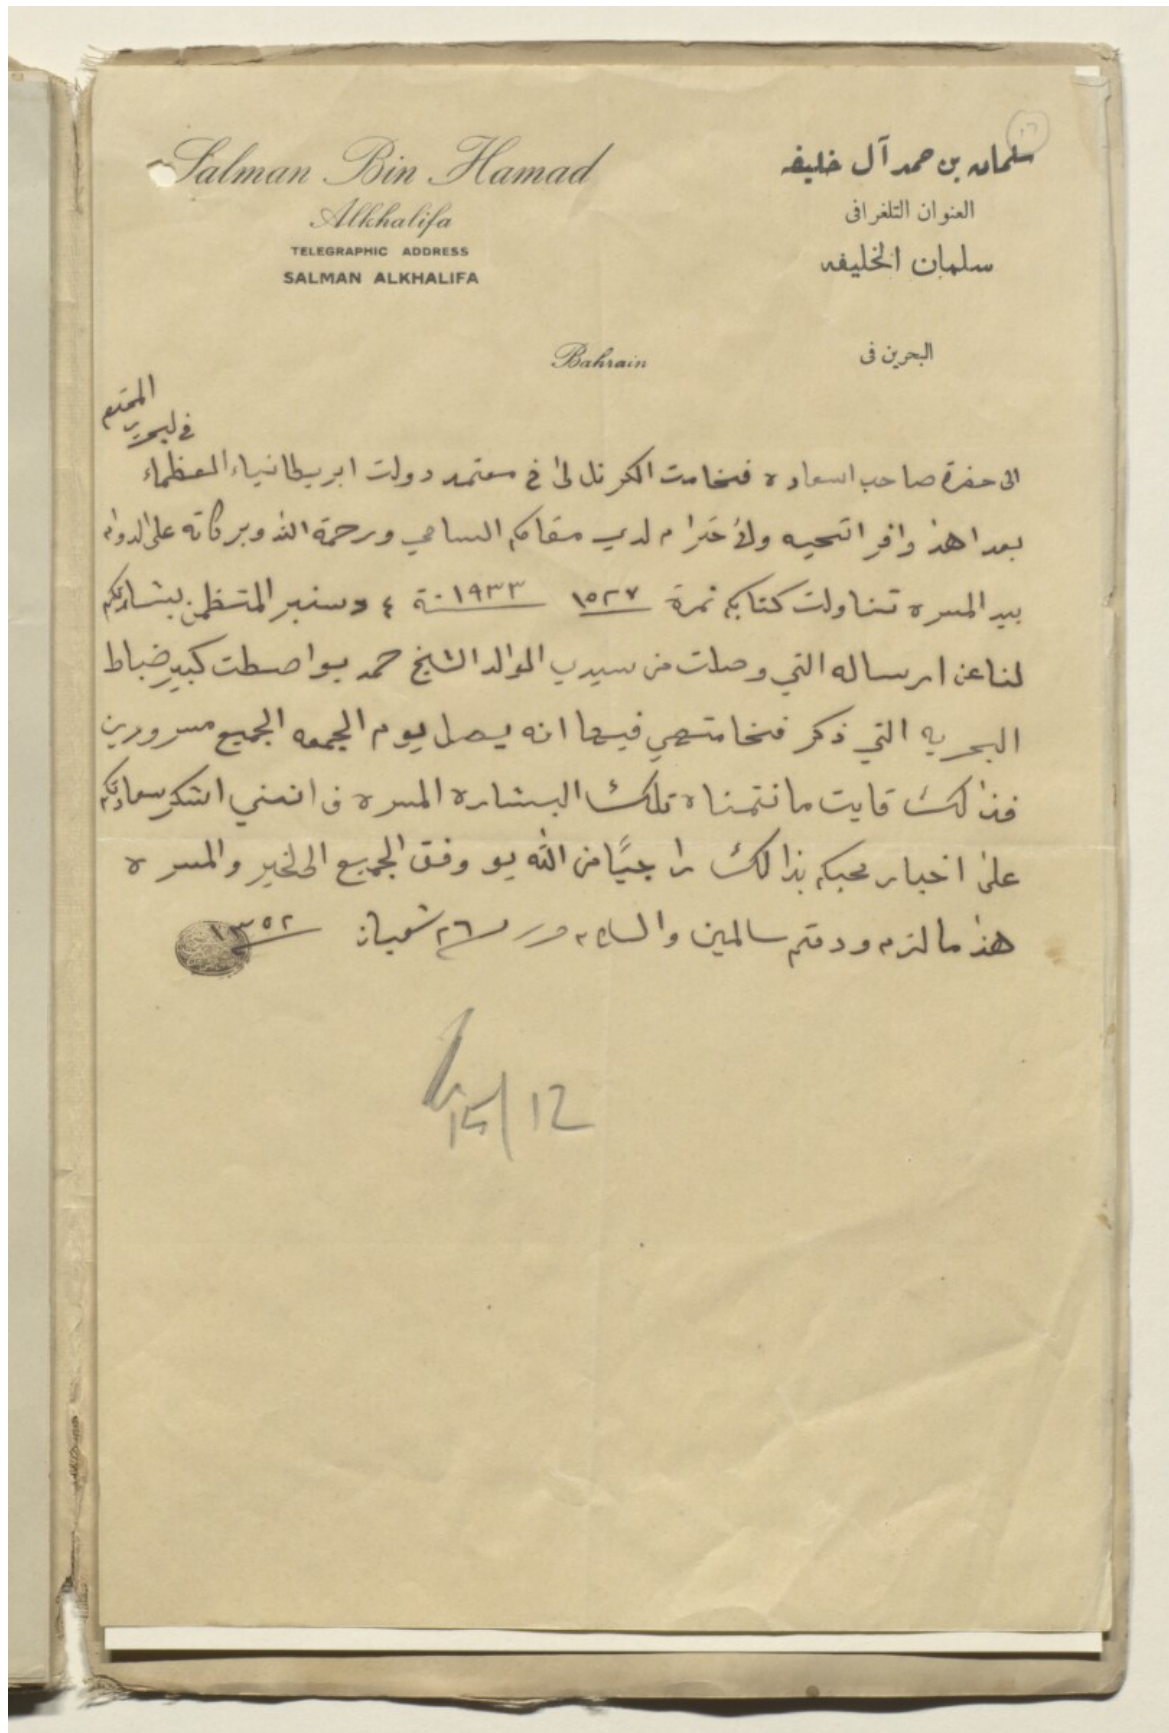 Salman Bin Hamad
Alkhalifa
TELEGRAPHIC ADDRESS
SALMAN ALKHALIFA
سلمان بن حمد آل خليفه
العنوان التلغرافى
سلمان الخليفه
Bahrain
البحرين فى
المحترم
في لبحرين
الى حضرة صاحب اسعاده فخامت الكرنل لى في معتمد دولت ابريطانياء المعظماء
بعد اهذ وافر اتحيه ولأحترام لدي مقامكم السامي ورحمة الله وبركاته على الدوام
بيد المسره تناولت كتابكم نمرة ١٥٢٧ ١٩٣٣ سنة ٤ دسنبر المتظمن بشارتكم
لنا عن ارساله التي وصلت من سيدي الوالد الشيخ حمد بواصطت كبير ضباط
البحريه التي ذكر فخامتهي فيها انه يصل يوم الجمعه الجميع مسرورين
فذالك قايت ما نتمناه تلك البشاره المسره فانني اشكر سعادتكم
على اخبار محبكم بذالك راجيًا من الله يووفق الجميع الى لخير والمسره
هذ ما لزم ودمتم سالمين والسلام حرر ٢٦ شعبان ١٣٥٢
15/12